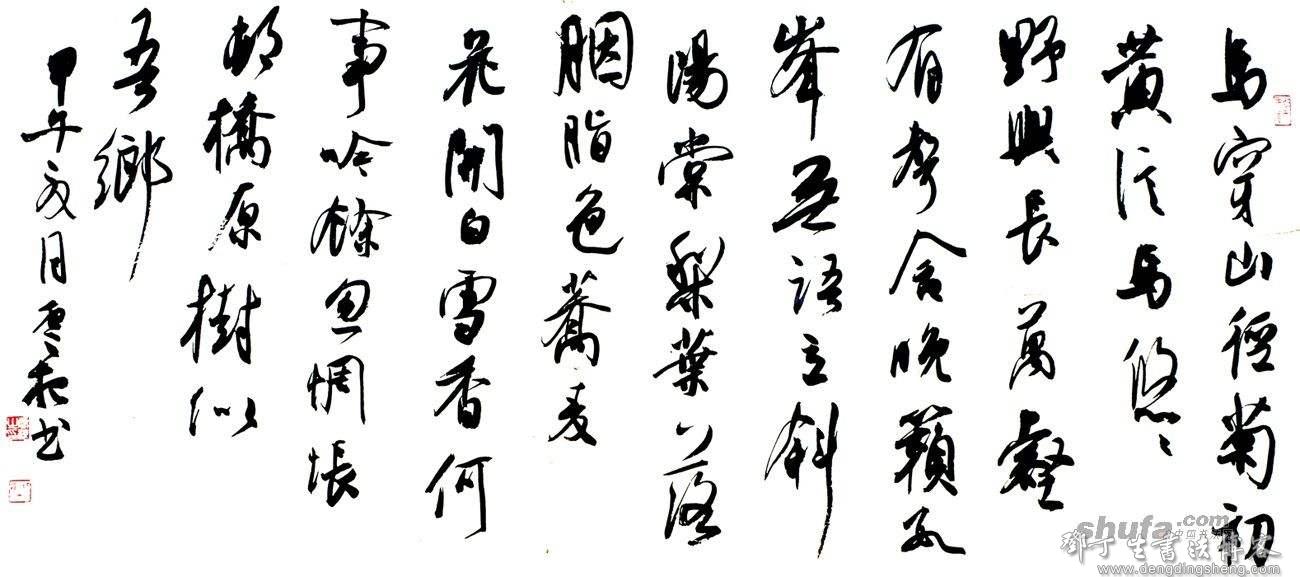 馬穿山徑菊初
黃信馬悠〻
野興長萬壑
有聲含晚籟數
峯無語立斜
陽棠梨葉落
胭脂色蕎麦
花開白雪香何
事吟餘忽惆悵
村橋原樹似
吾鄉
甲午夏月书
shufa.com
鄧丁生書法博客
www.dengdingsheng.com